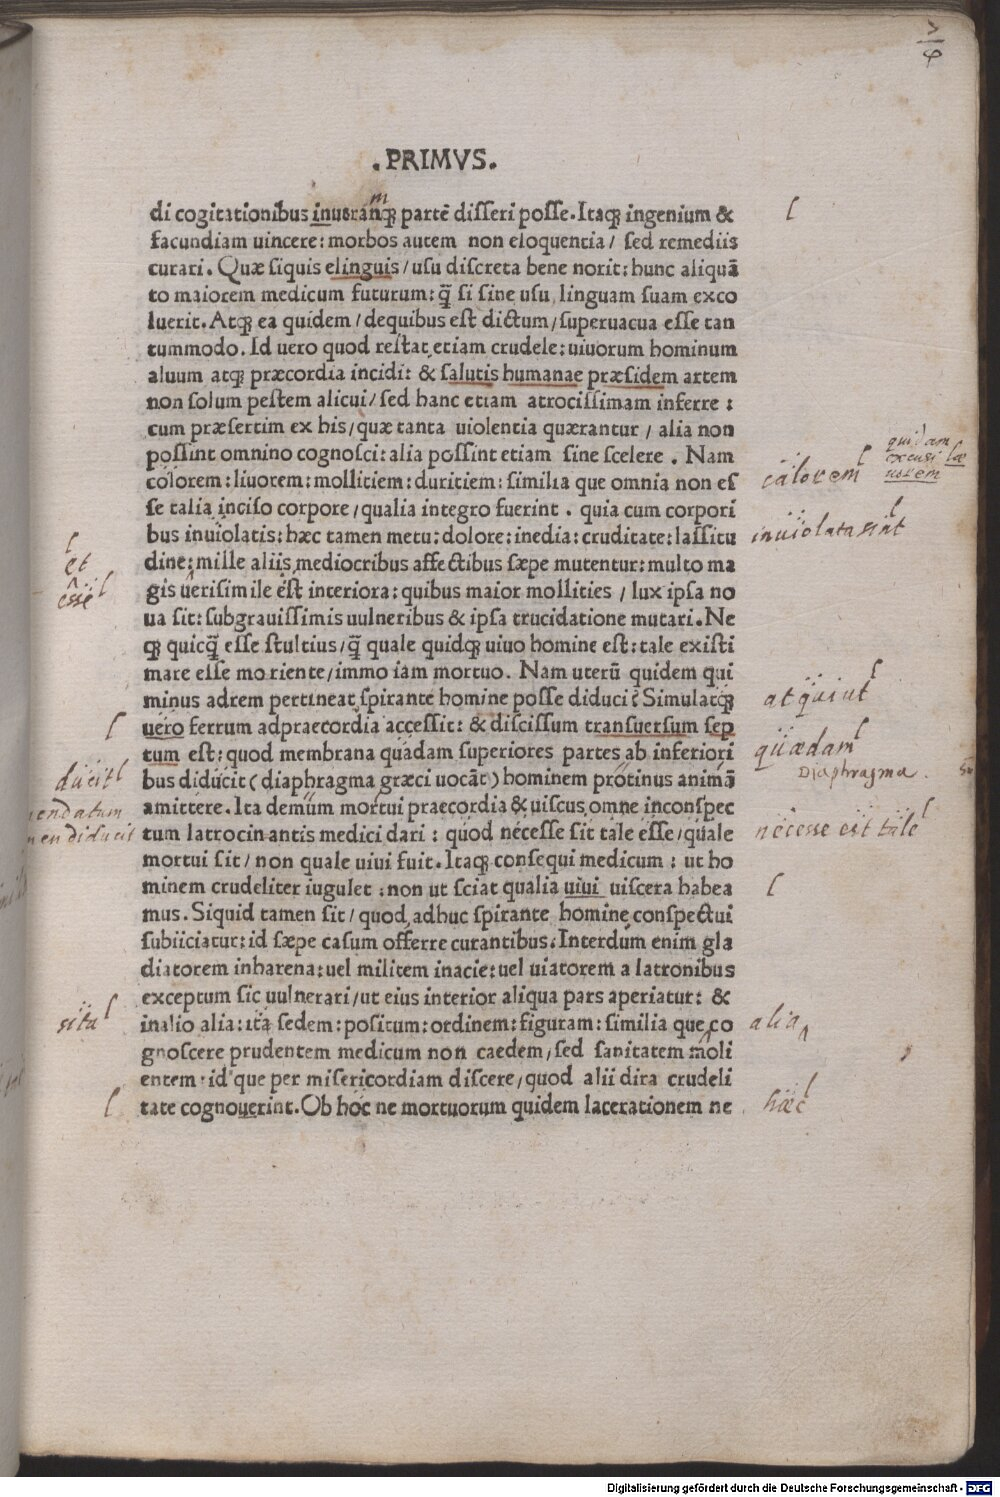 .PRIMVS.
di cogitationibus inutranq; partē disseri posse. Itaq; ingenium &
facundiam uincere: morbos autem non eloquentia/ sed remediis
curari. Quæ siquis elinguis/usu discreta bene norit: hunc aliquā
to maiorem medicum futurum: q̄ si sine usu linguam suam exco
luerit. Atq; ea quidem/dequibus est dictum/superuacua esse tan
tummodo. Id uero quod restat etiam crudele: uiuorum hominum
aluum atq; præcordia incidi: & salutis humanae præsidem artem
non solum pestem alicui/sed hanc etiam atrocissimam inferre:
cum præsertim ex his/quæ tanta uiolentia quærantur/ alia non
possint omnino cognosci: alia possint etiam sine scelere. Nam
quidam
excusi
colorem: liuorem: mollitiem: duritiem: similia que omnia non es
calorem
se talia inciso corpore/qualia integro fuerint. quia cum corpori
bus inuiolatis: hæc tamen metu: dolore: inedia: cruditate: lassitu
inuiolata sint
dine: mille aliis mediocribus affectibus sæpe mutentur: multo ma
et
gis uerisimile est interiora: quibus maior mollities / lux ipsa no
esse
ua sit: subgrauissimis uulneribus & ipsa trucidatione mutari. Ne
q; quicq̄ esse stultius/q̄ quale quidq; uiuo homine est: tale existi
mare esse moriente/immo iam mortuo. Nam uterū quidem qui
minus adrem pertineat spirante homine posse diduci: Simulatq;
atqui ut
uero ferrum adpraecordia accessit: & discissum transuersum sep
tum est: quod membrana quadam superiores partes ab inferiori
quædam
bus diducit (diaphragma græci uocāt) hominem protinus animā
ducit
Diaphragma.
amittere. Ita demum mortui praecordia & uiscus omne inconspec
tum latrocinantis medici dari: quod necesse sit tale esse/quale
necesse est tale
mortui sit/ non quale uiui fuit. Itaq; consequi medicum: ut ho
minem crudeliter iugulet: non ut sciat qualia uiui uiscera habea
mus. Siquid tamen sit/quod adhuc spirante homine conspectui
subiiciatur: id sæpe casum offerre curantibus. Interdum enim gla
diatorem inharena: uel militem inacie: uel uiatorem a latronibus
exceptum sic uulnerari/ut eius interior aliqua pars aperiatur: &
inalio alia: ita sedem: positum: ordinem: figuram: similia que co
sita
alia
gnoscere prudentem medicum non caedem/sed sanitatem moli
entem: id que per misericordiam discere/quod alii dira crudeli
tate cognouerint. Ob hoc ne mortuorum quidem lacerationem ne
hæc
Digitalisierung gefördert durch die Deutsche Forschungsgemeinschaft - DFG